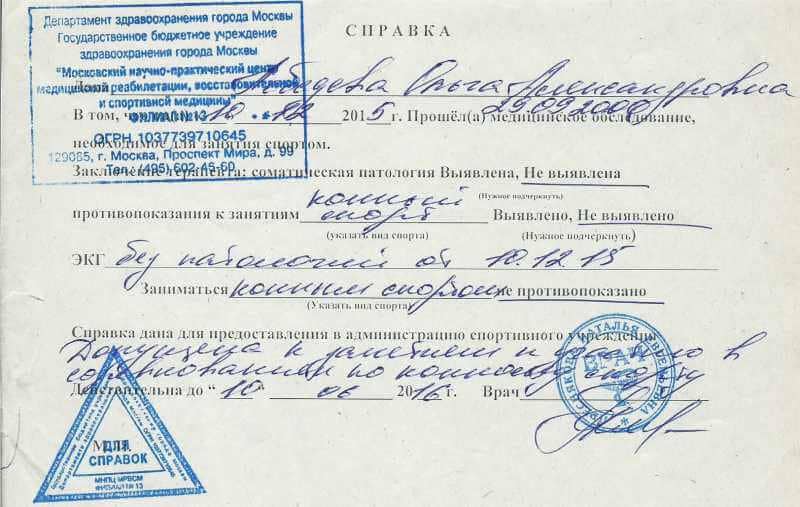 Департамент здравоохранения города Москвы
Государственное бюджетное учреждение
здравоохранения города Москвы
"Московский научно-практический центр
медицинской реабилитации, восстановительной
и спортивной медицины"
ФИЛИАЛ № 13
ОГРН 1037739710645
129085, г. Москва, Проспект Мира, д. 99
Тел. (495) 602-45-60
СПРАВКА
Дана Ольга Александровна
29.09.2000
В том, что 10 12 2015 г. Прошёл(а) медицинское обследование,
необходимое для занятия спортом.
Заключение терапевта: соматическая патология Выявлена, Не выявлена
(Нужное подчеркнуть)
противопоказания к занятиям конный спорт Выявлено, Не выявлено
(указать вид спорта) (Нужное подчеркнуть)
ЭКГ без патологий от 10.12.15
Заниматься конным спортом не противопоказано
(Указать вид спорта)
Справка дана для предоставления в администрацию спортивного учреждения
Допущена к занятиям и участию в
соревнованиях по конному спорту
Действительна до "10" 06 2016 г. Врач
НАТАЛЬЯ
ВРАЧ
М.П.
ДЛЯ
СПРАВОК
МНПЦ МРВСМ
ФИЛИАЛ № 13